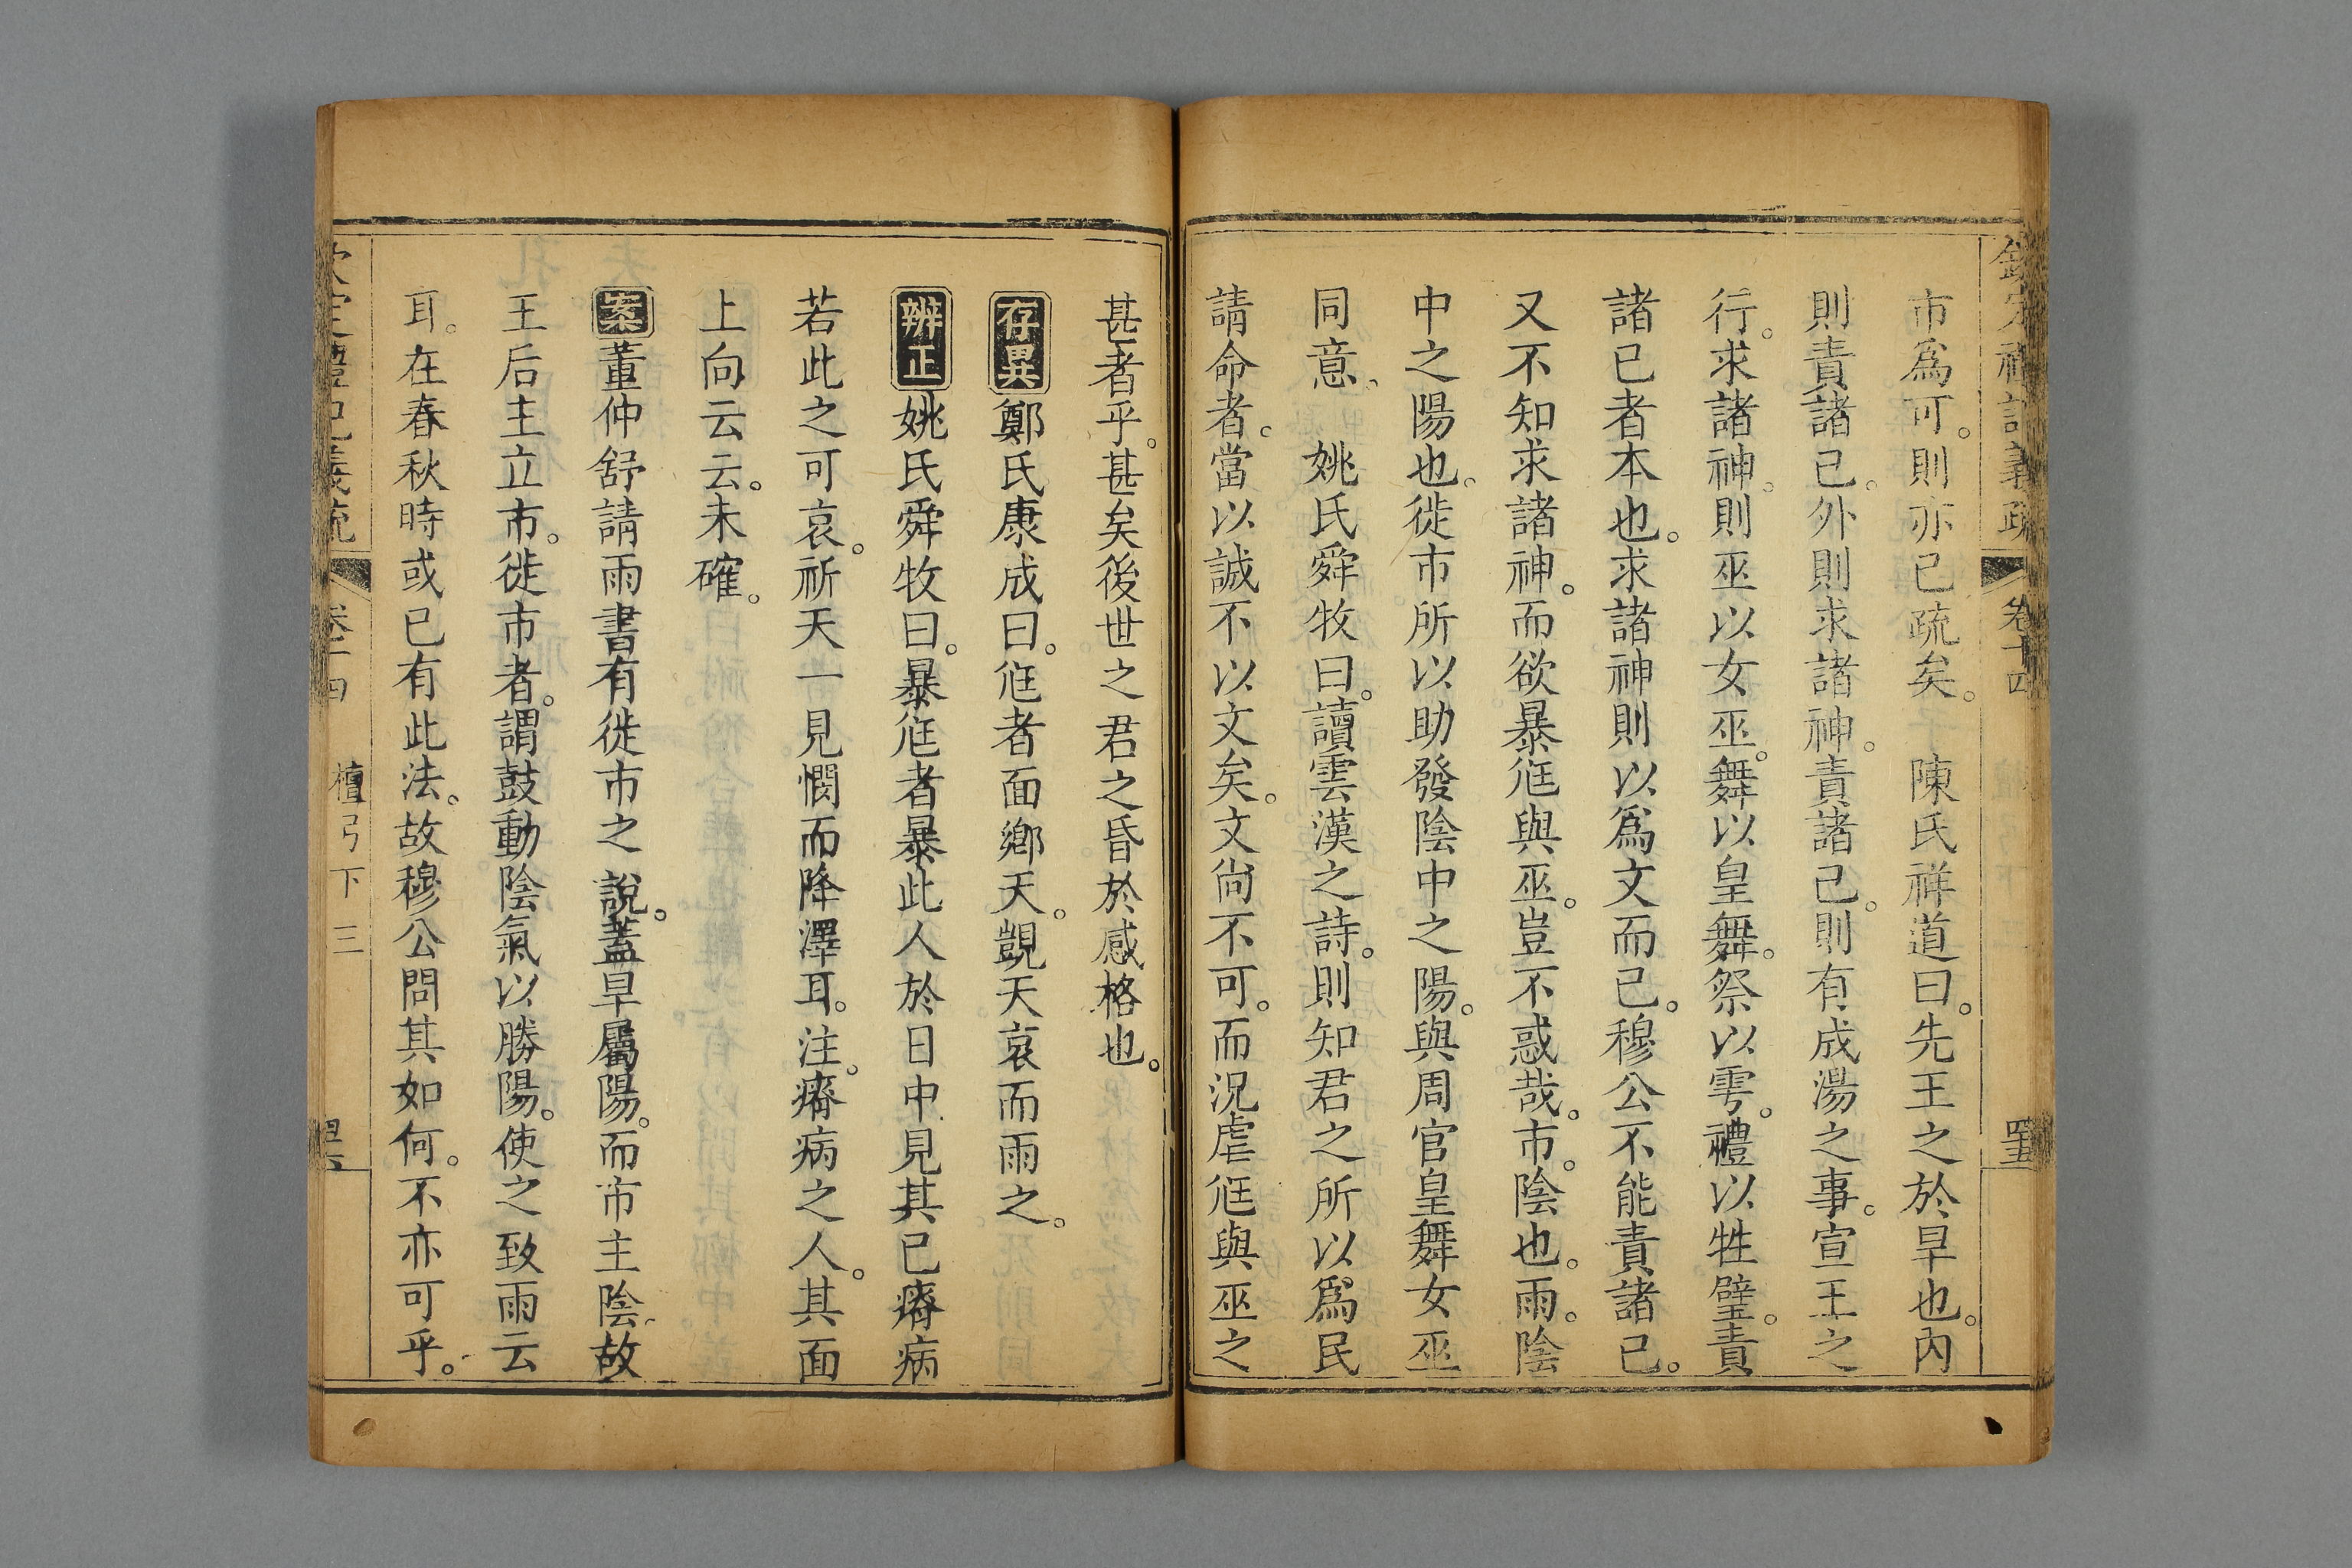 欽定禮記義疏 卷十四
市爲可。則亦已疏矣。 陳氏祥道曰。先王之於旱也。內
則責諸己。外則求諸神。責諸己。則有成湯之事。宣王之
行。求諸神。則巫以女巫。舞以皇舞。祭以雩。禮以牲璧。責
諸己者本也。求諸神則以爲文而已。穆公不能責諸己。
又不知求諸神。而欲暴尫與巫。豈不惑哉。市。陰也。雨。陰
中之陽也。徙市所以助發陰中之陽。與周官皇舞女巫
同意。 姚氏舜牧曰。讀雲漢之詩。則知君之所以爲民
請命者。當以誠不以文矣。文尙不可。而況虐尫與巫之
甚者乎。甚矣後世之君之昏於感格也。
存異 鄭氏康成曰。尫者面鄉天。覬天哀而雨之。
辨正 姚氏舜牧曰。暴尫者暴此人於日中見其已瘠病
若此之可哀。祈天一見憫而降澤耳。注。瘠病之人。其面
上向云云。未確。
案 董仲舒請雨書有徙市之說。蓋旱屬陽。而市主陰。故
王后主立市。徙市者。謂鼓動陰氣以勝陽。使之致雨云
耳。在春秋時或已有此法。故穆公問其如何。不亦可乎。
欽定禮記義疏 卷十四 檀弓下三